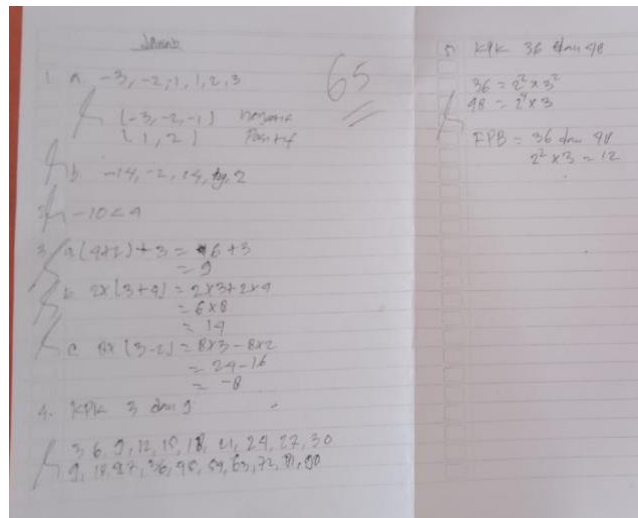 Jawab
65
1. a. -3, -2, -1, 1, 2, 3
(-3, -2, -1) negatif
(1, 2) Positif
b. -14, -2, 14, 2
2. -10 < 9
3. a (4+2) + 3 = 6 + 3
= 9
b. 2x (3+4) = 2x3 + 2x4
= 6 x 8
= 14
c. 8x (3-2) = 8x3 - 8x2
= 24 - 16
= -8
4. KPK 3 dan 9
3, 6, 9, 12, 15, 18, 21, 24, 27, 30
9, 18, 27, 36, 45, 54, 63, 72, 81, 90
5. KPK 36 dan 48
36 = 2² x 3²
48 = 2⁴ x 3
FPB = 36 dan 48
2² x 3 = 12